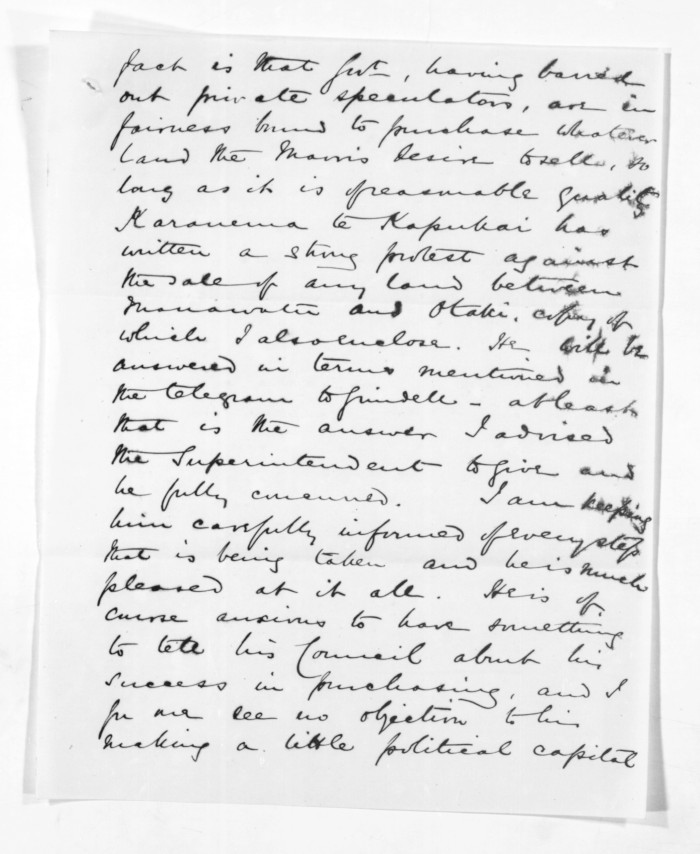 fact is that Govt, having barred
out private speculators, are in
fairness bound to purchase whatever
land the Maoris desire to sell, so
long as it is of reasonable quality
Karanema te Kapukai has
written a strong protest against
the sale of any land between
Manawatu and Otaki, copy of
which I also enclose. He will be
answered in terms mentioned in
the telegram to Grindell - at least
that is the answer I advised
the Superintendent to give and
he fully concurred. I am keeping
him carefully informed of every step
that is being taken and he is much
pleased at it all. He is of
course anxious to have something
to tell his Council about his
success in purchasing, and I
for one see no objection to his
making a little political capital